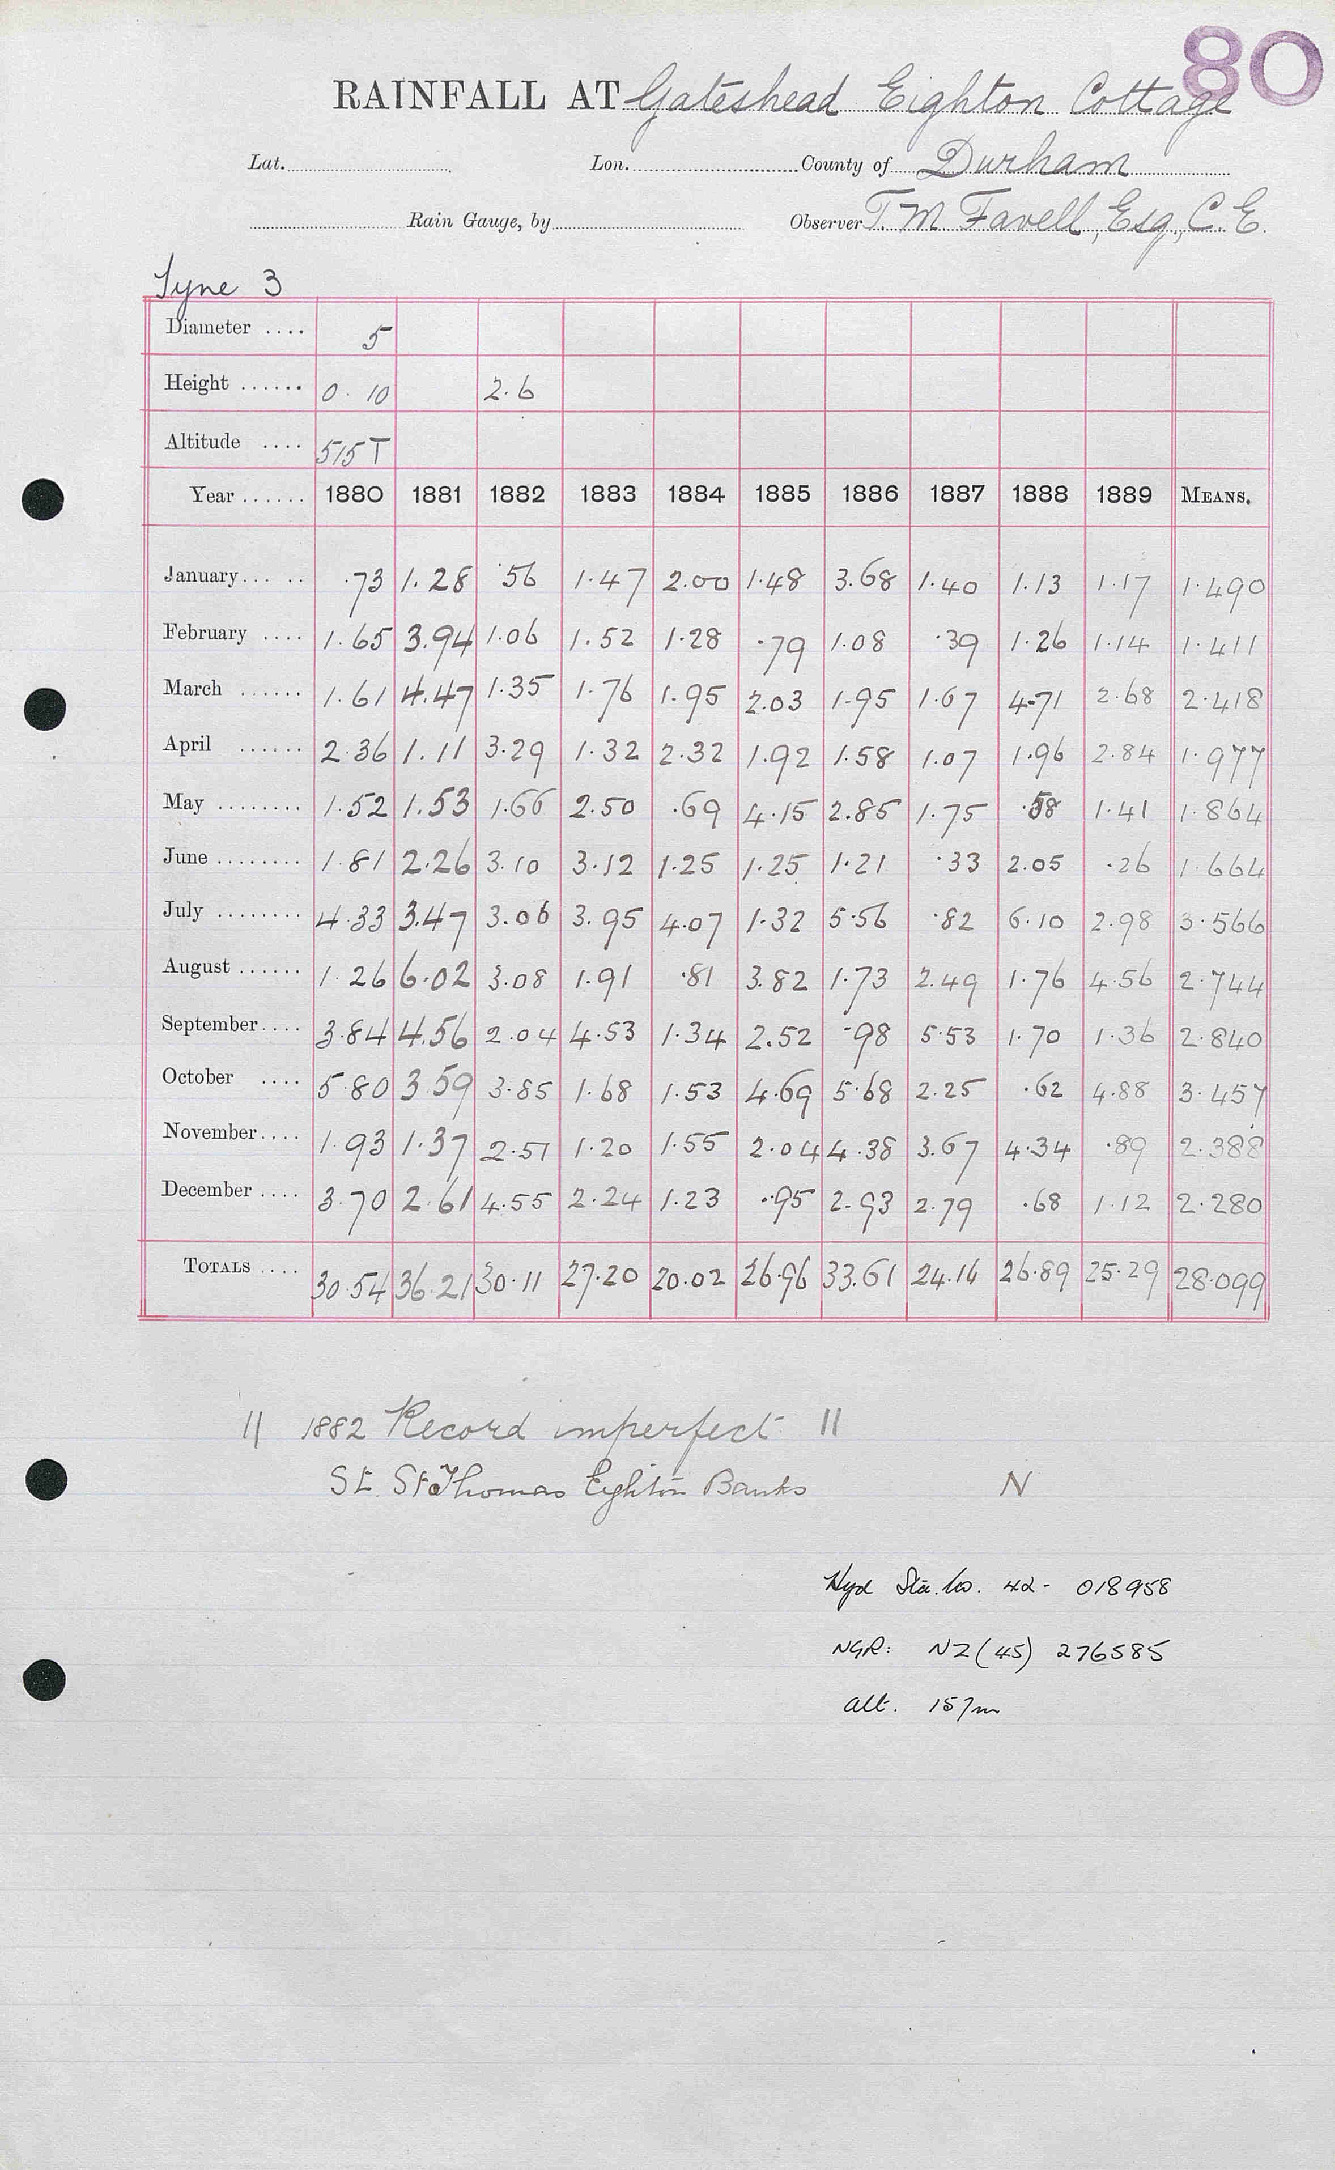 80
RAINFALL AT Gateshead Eighton Cottage
Lat. Lon. County of Durham
Rain Gauge, by Observer T. M Favell, Esq., C. E.
Tyne 3
Diameter .... 5
Height ...... 0. 10 2.6
Altitude .... 515 T
Year ...... 1880 1881 1882 1883 1884 1885 1886 1887 1888 1889 MEANS.
January... .. .73 1.28 .56 1.47 2.00 1.48 3.68 1.40 1.13 1.17 1.490
February .... 1.65 3.94 1.06 1.52 1.28 .79 1.08 .39 1.26 1.14 1.411
March ...... 1.61 4.47 1.35 1.76 1.95 2.03 1.95 1.67 4.71 2.68 2.418
April ...... 2.36 1.11 3.29 1.32 2.32 1.92 1.58 1.07 1.96 2.84 1.977
May ........ 1.52 1.53 1.66 2.50 .69 4.15 2.85 1.75 .58 1.41 1.864
June ........ 1.81 2.26 3.10 3.12 1.25 1.25 1.21 .33 2.05 .26 1.664
July ........ 4.33 3.47 3.06 3.95 4.07 1.32 5.56 .82 6.10 2.98 3.566
August ...... 1.26 6.02 3.08 1.91 .81 3.82 1.73 2.49 1.76 4.56 2.744
September.... 3.84 4.56 2.04 4.53 1.34 2.52 .98 5.53 1.70 1.36 2.840
October .... 5.80 3.59 3.85 1.68 1.53 4.69 5.68 2.25 .62 4.88 3.457
November.... 1.93 1.37 2.51 1.20 1.55 2.04 4.38 3.67 4.34 .89 2.388
December .... 3.70 2.61 4.55 2.24 1.23 .95 2.93 2.79 .68 1.12 2.280
TOTALS .... 30.54 36.21 30.11 27.20 20.02 26.96 33.61 24.16 26.89 25.29 28.099
|| 1882 Record imperfect ||
St. St. Thomas Eighton Banks N
Hyd Sta. No. 42- 018958
NGR: NZ (45) 276585
alt. 157m